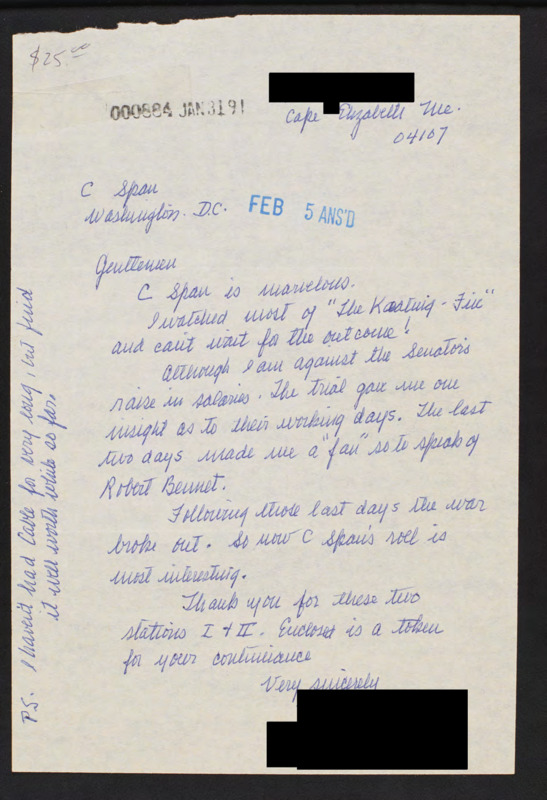 $25.00
000884 JAN 31 91
Cape Elizabeth Me.
04107
C Span
Washington. D.C.
FEB 5 ANS'D
Gentlemen
C Span is marvelous.
I watched most of "The Keating-Five"
and can't wait for the outcome!
Although I am against the Senators
raise in salaries. The trial gave me one
insight as to their working days. The last
two days made me a "fan" so to speak of
Robert Bennet.
Following those last days the war
broke out. So now C Span's roll is
most interesting.
Thank you for these two
stations I & II. Enclosed is a token
for your continuance
Very sincerely
P.S. I haven't had Cable for very long, but find
it well worth while so far.